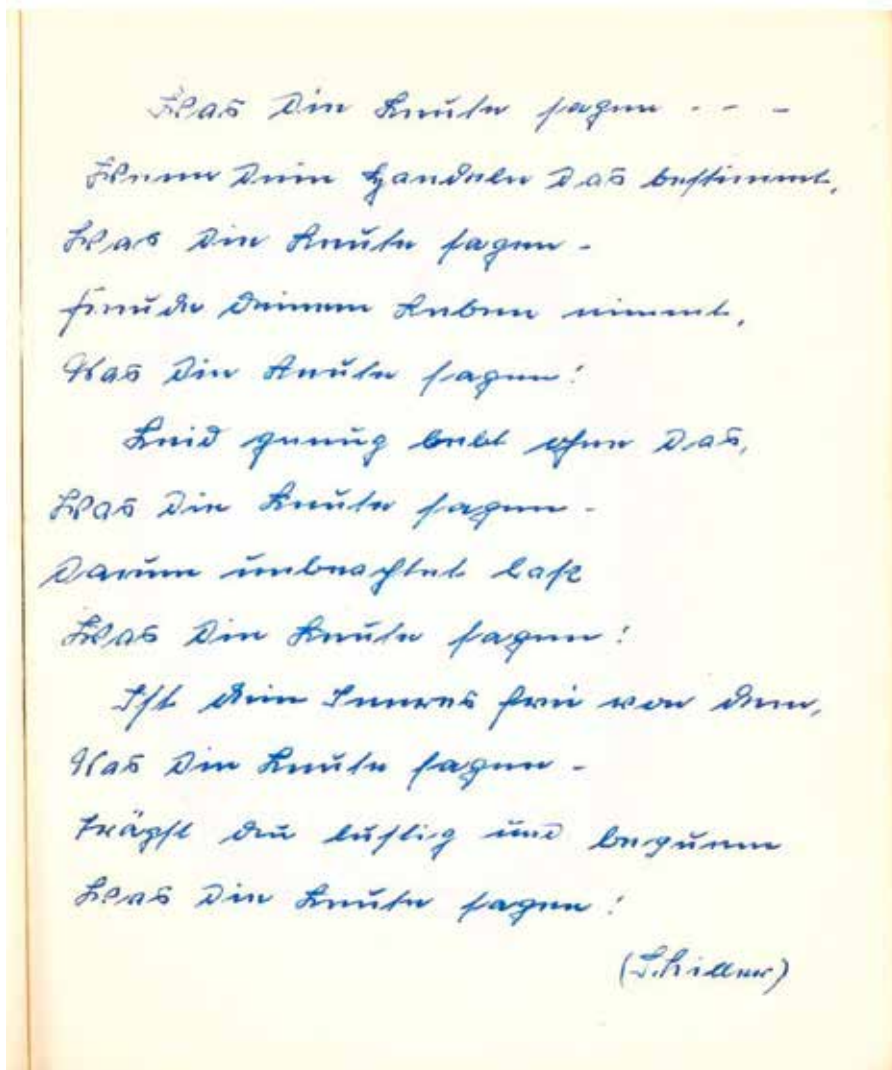 Was die Leute sagen - - -
Wenn Dein Handeln das bestimmt,
Was die Leute sagen -
Freude deinem Leben nimmt,
Was die Leute sagen!
Leid genug lebt ohne das,
Was die Leute sagen -
Darum unbeachtet laß
Was die Leute sagen!
Ist dein Inneres frei von dem,
Was die Leute sagen -
Trägst du lustig und bequem
Was die Leute sagen!
(Schiller)